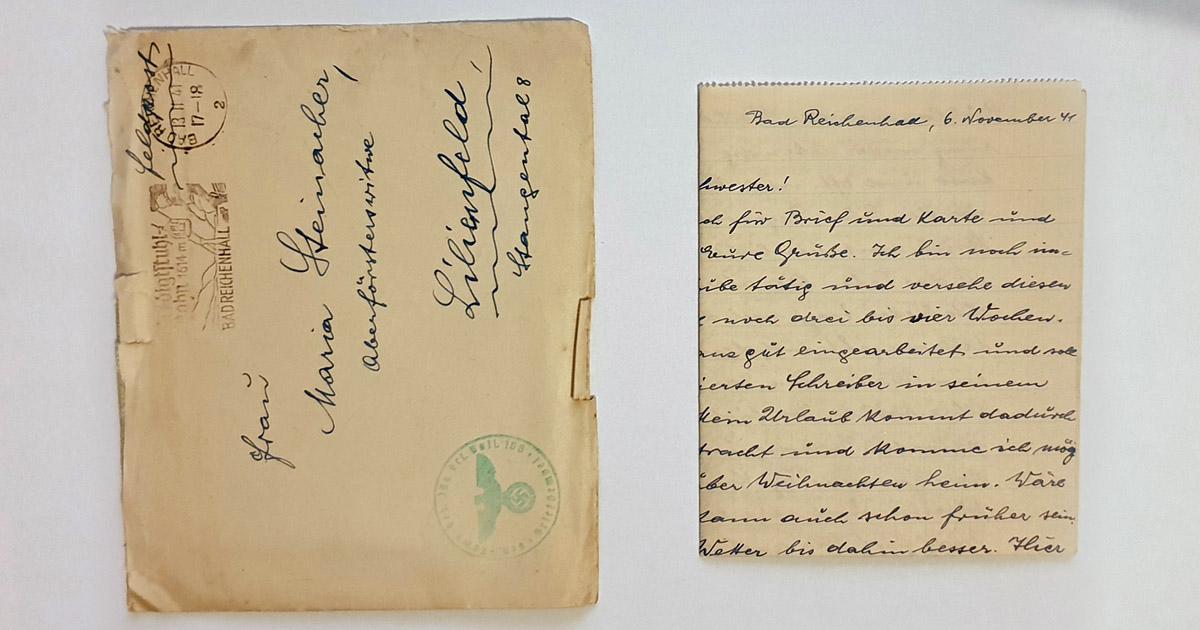 Feldpost
13 11 41
17-18
2
BAD REICHENHALL
1614 m
Frau
Maria Steinacher,
Oberförsterswitwe
Lilienfeld
Stangental 8
Bad Reichenhall, 6. November 41
hwester!
ch für Brief und Karte und
Eure Grüße. Ich bin noch im-
ibe tätig und versehe diesen
noch drei bis vier Wochen.
anz gut eingearbeitet und soll
ierten Schreiber in seinem
Mein Urlaub kommt dadurch
tracht und komme ich mög
über Weihnachten heim. Wäre
dann auch schon früher sein.
Wetter bis dahin besser. Hier